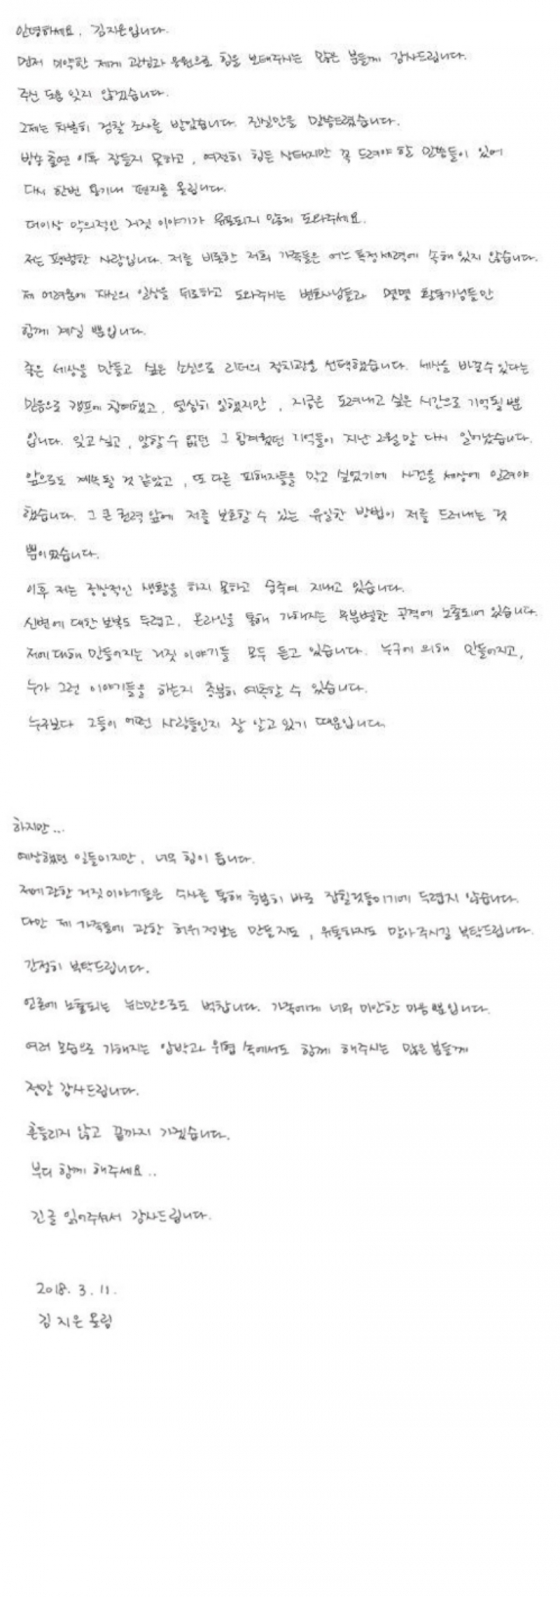 안녕하세요. 김지은입니다.
먼저 미약한 제게 관심과 응원으로 힘을 보태주시는 많은 분들께 감사드립니다.
주신 도움 잊지 않겠습니다.
그제는 차분히 검찰 조사를 받았습니다. 진실만을 말씀드렸습니다.
방송 출연 이후 잠들지 못하고, 여전히 힘든 상태지만 꼭 드려야 할 말씀들이 있어
다시 한번 용기내 편지를 올립니다.
더이상 악의적인 거짓 이야기가 유포되지 않게 도와주세요.
저는 평범한 사람입니다. 저를 비롯한 저희 가족들은 어느 특정세력에 속해 있지 않습니다.
제 어려움에 자신의 일상을 뒤로하고 도와주시는 변호사님들과 몇몇 활동가님들만
함께 계실 뿐입니다.
좋은 세상을 만들고 싶은 소신으로 리더의 정치관을 선택했습니다. 세상을 바꿀수 있다는
믿음으로 캠프에 참여했고, 열심히 일했지만, 지금은 도려내고 싶은 시간으로 기억될 뿐
입니다. 잊고 싶고, 말할 수 없던 그 힘겨웠던 기억들이 지난 2월말 다시 일어났습니다.
앞으로도 계속될 것 같았고, 또 다른 피해자들을 막고 싶었기에 사건을 세상에 알려야
했습니다. 그 큰 권력 앞에 저를 보호할 수 있는 유일한 방법이 저를 드러내는 것
뿐이었습니다.
이후 저는 정상적인 생활을 하지 못하고 숨죽여 지내고 있습니다.
신변에 대한 보복도 두렵고, 온라인을 통해 가해지는 무분별한 공격에 노출되어 있습니다.
저에 대해 만들어지는 거짓 이야기들 모두 듣고 있습니다. 누구에 의해 만들어지고,
누가 그런 이야기들을 하는지 충분히 예측할 수 있습니다.
누구보다 그들이 어떤 사람들인지 잘 알고 있기 때문입니다.
하지만...
예상했던 일들이지만, 너무 힘이 듭니다.
저에 관한 거짓 이야기들은 수사를 통해 충분히 바로 잡힐것들이기에 두렵지 않습니다.
다만 제 가족들에 관한 허위 정보는 만들지도, 유통하지도 말아주시길 부탁드립니다.
간절히 부탁드립니다.
언론에 노출되는 뉴스만으로도 벅찹니다. 가족에게 너무 미안한 마음 뿐입니다.
여러 모습으로 가해지는 압박과 위협 속에서도 함께 해주시는 많은 분들께
정말 감사드립니다.
흔들리지 않고 끝까지 가겠습니다.
부디 함께 해주세요..
긴글 읽어주셔서 감사드립니다.
2018. 3. 11.
김지은 올림